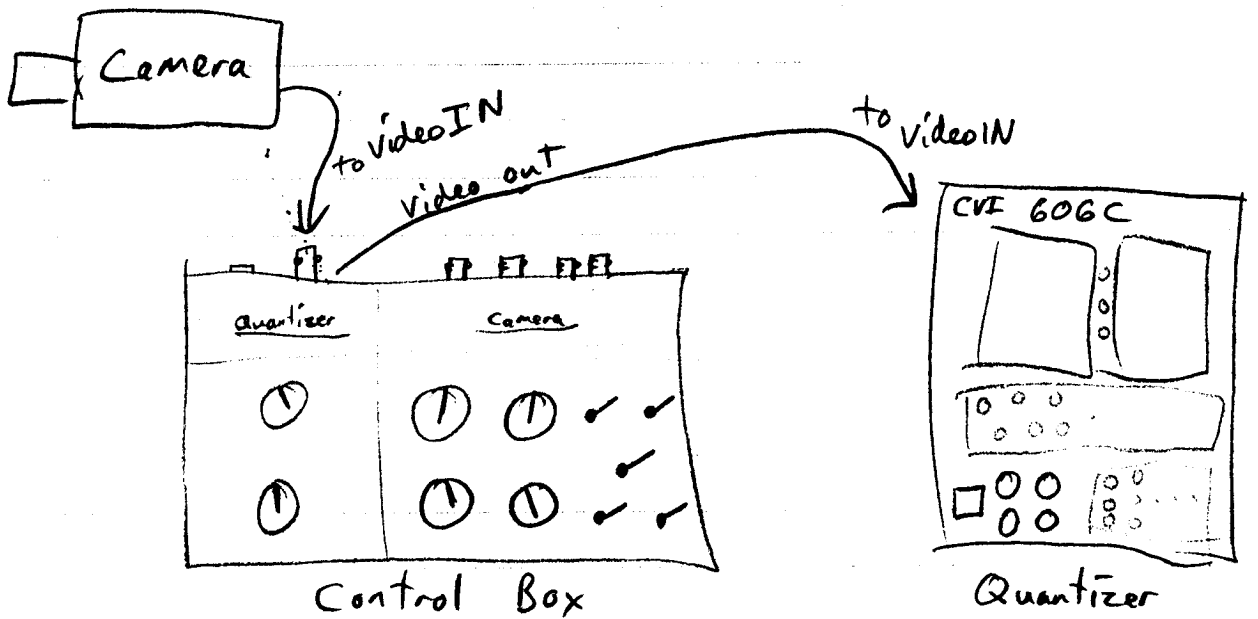 Camera
to video IN
video out
to video IN
CVI 606C
Quantizer
Camera
Control Box
Quantizer